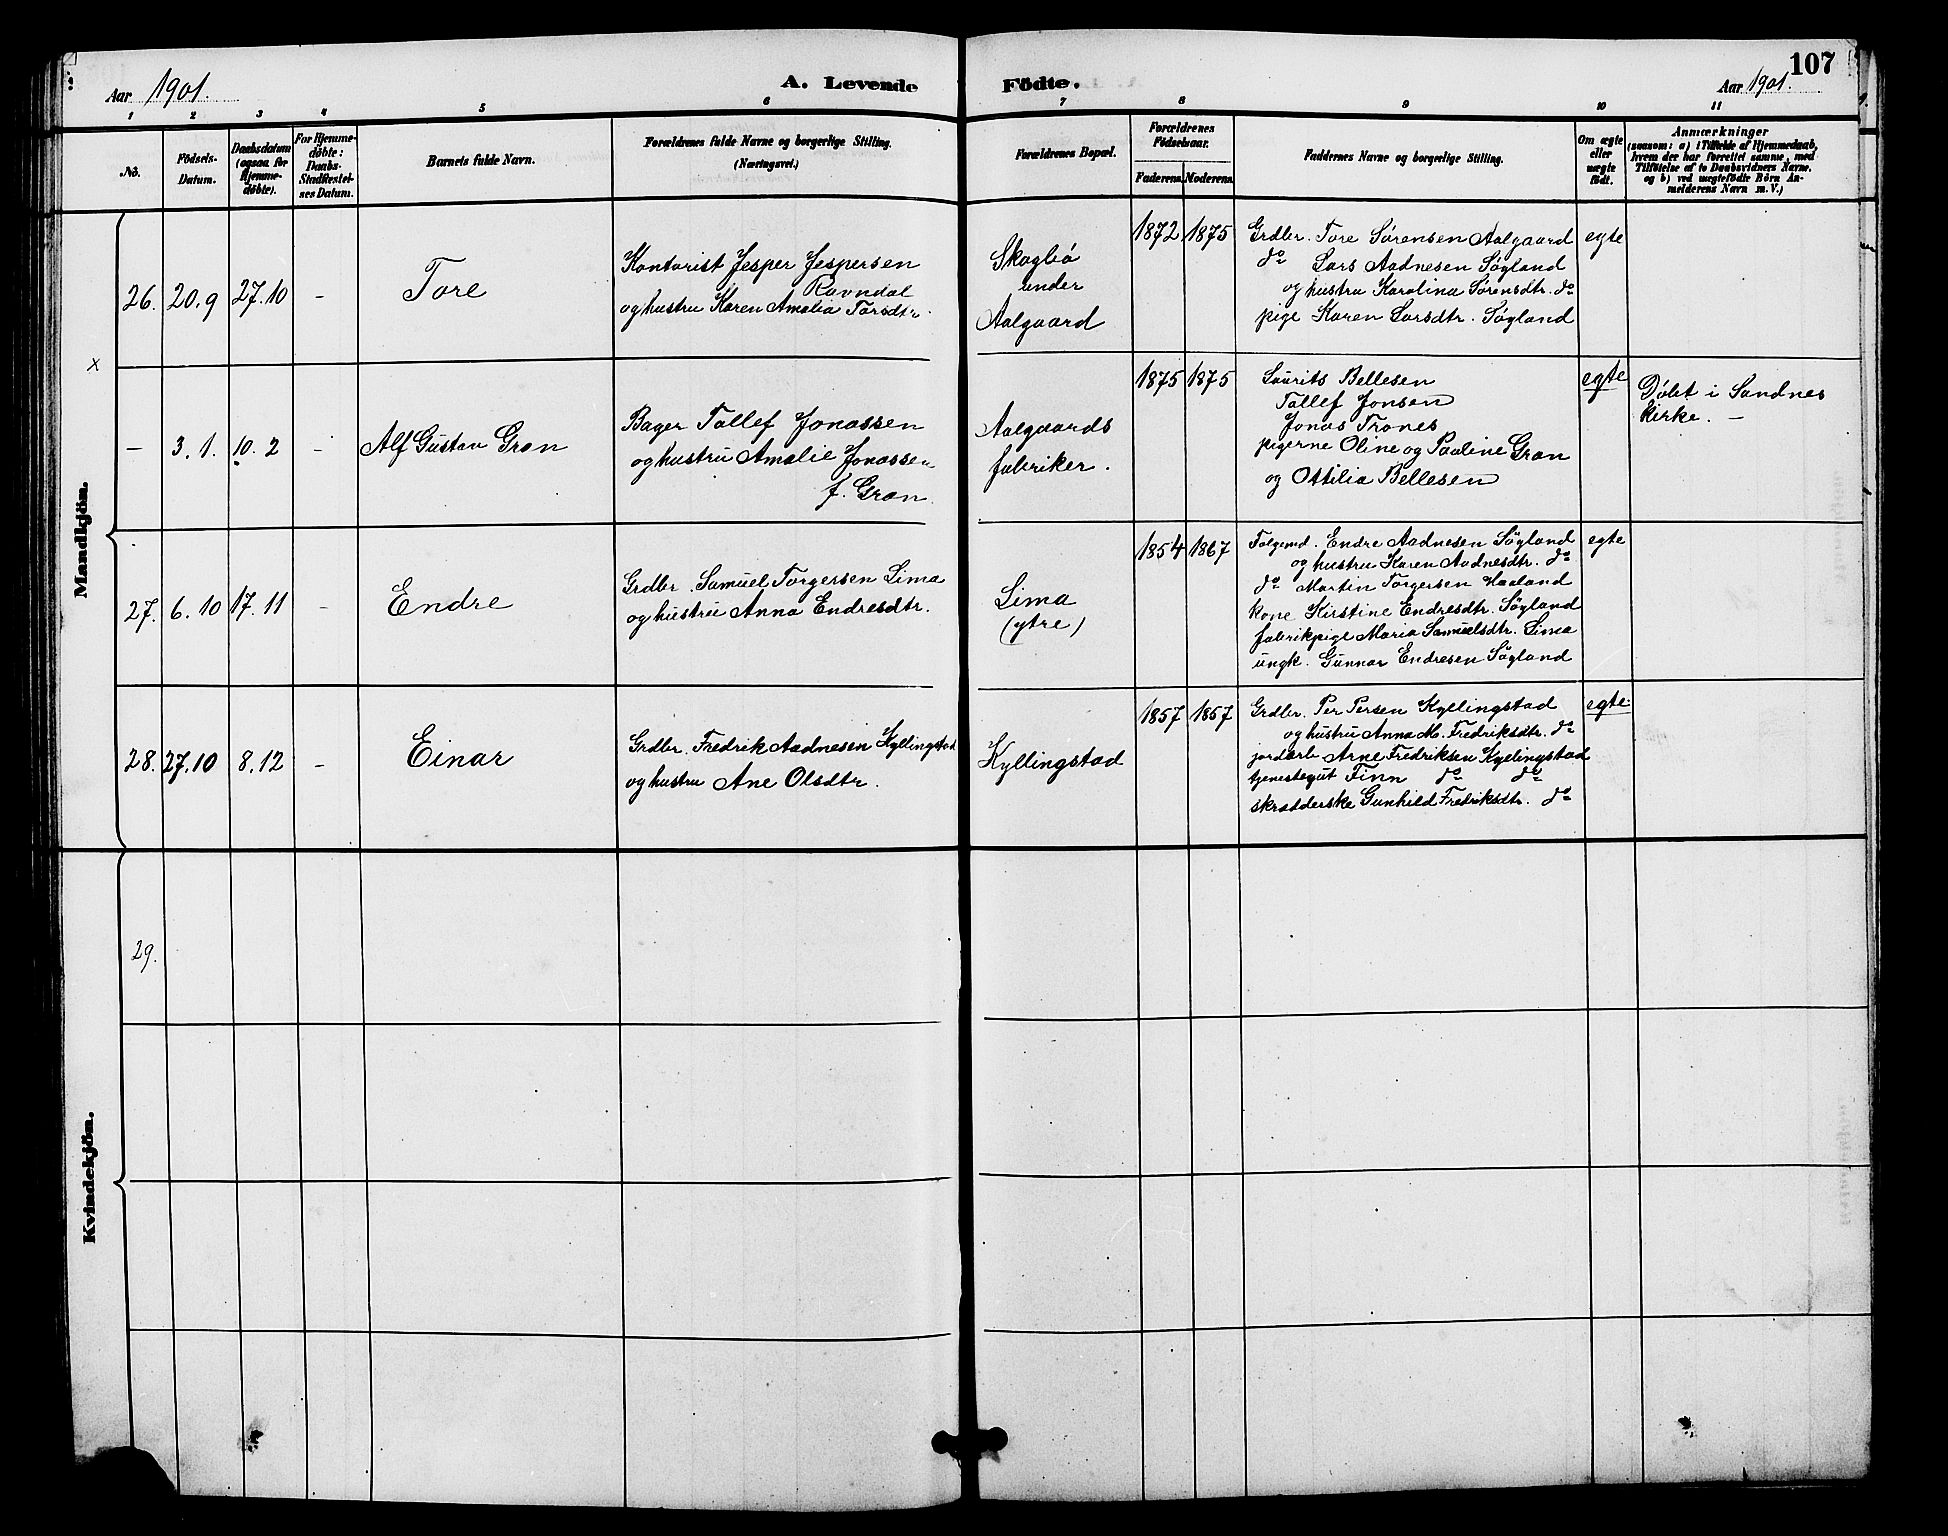 107
Aar 1901. A. Levende Födte. Aar 1901.
1 2 3 4 5 6 7 8 9 10 11
No. Födsels-Datum. Daabsdatum (ogsaa for Hjemmedöbte). For Hjemmedöbte: Daabs-Stadfæstelses Datum. Barnets fulde Navn. Forældrenes fulde Navne og borgerlige Stilling. (Næringsvei.) Forældrenes Bopæl. Forældrenes Födselsaar. Faderens. Moderens. Faddernes Navne og borgerlige Stilling. Om ægte eller uægte födt. Anmærkninger (saasom: a) i Tilfælde af Hjemmedaab, hvem der har forrettet samme, med Tilföielse af to Daabsvidners Navne, og b) ved uægtefödte Börn Anmelderens Navn m. V.)
Mandkjön.
26. 20.9 27.10 – Tore
Kontorist Jesper Jespersen
Ravndal
og hustru Karen Amalia Torsdtr.
Skogbö
under
Aalgaard
1872 1875
Grdbr. Tore Sørensen Aalgaard
do Lars Aadnesen Søyland
og hustru Karolina Sørensdtr. do
pige Karen Larsdtr. Søyland
egte
x
– 3.1. 10.2 – Alf Gustav Gran
Bager Tollef Jonassen
og hustru Amalie Jonassen
f. Gran
Aalgaards
fabriker.
1875 1875
Laurits Bellesen
Tollef Jonsen
Jonas Trones
pigerne Oline og Pauline Gran
og Ottilia Bellesen
egte
Døbt i Sandnes
kirke. –
27. 6.10 17.11 – Endre
Grdbr. Samuel Torgersen Lima
og hustru Anna Endresdtr.
Lima
(ytre)
1854 1867
Folgemd. Endre Aadnesen Søyland
og hustru Karen Aadnesdtr. do
do Martin Torgersen Haaland
kone Kirstine Endresdtr. Søyland
fabrikpige Maria Samuelsdtr. Lima
ungk. Gunnar Endresen Søyland
egte
28. 27.10 8.12 – Einar
Grdbr. Fredrik Aadnesen Kyllingstad
og hustru Ane Olsdtr.
Kyllingstad
1857 1857
Grdbr. Per Persen Kyllingstad
og hustru Anna M. Fredriksdtr. do
jordarb Arne Fredriksen Kyllingstad
tjenestegut Finn do do
skrædderske Gunhild Fredriksdtr. do
egte
Kvindekjön.
29.